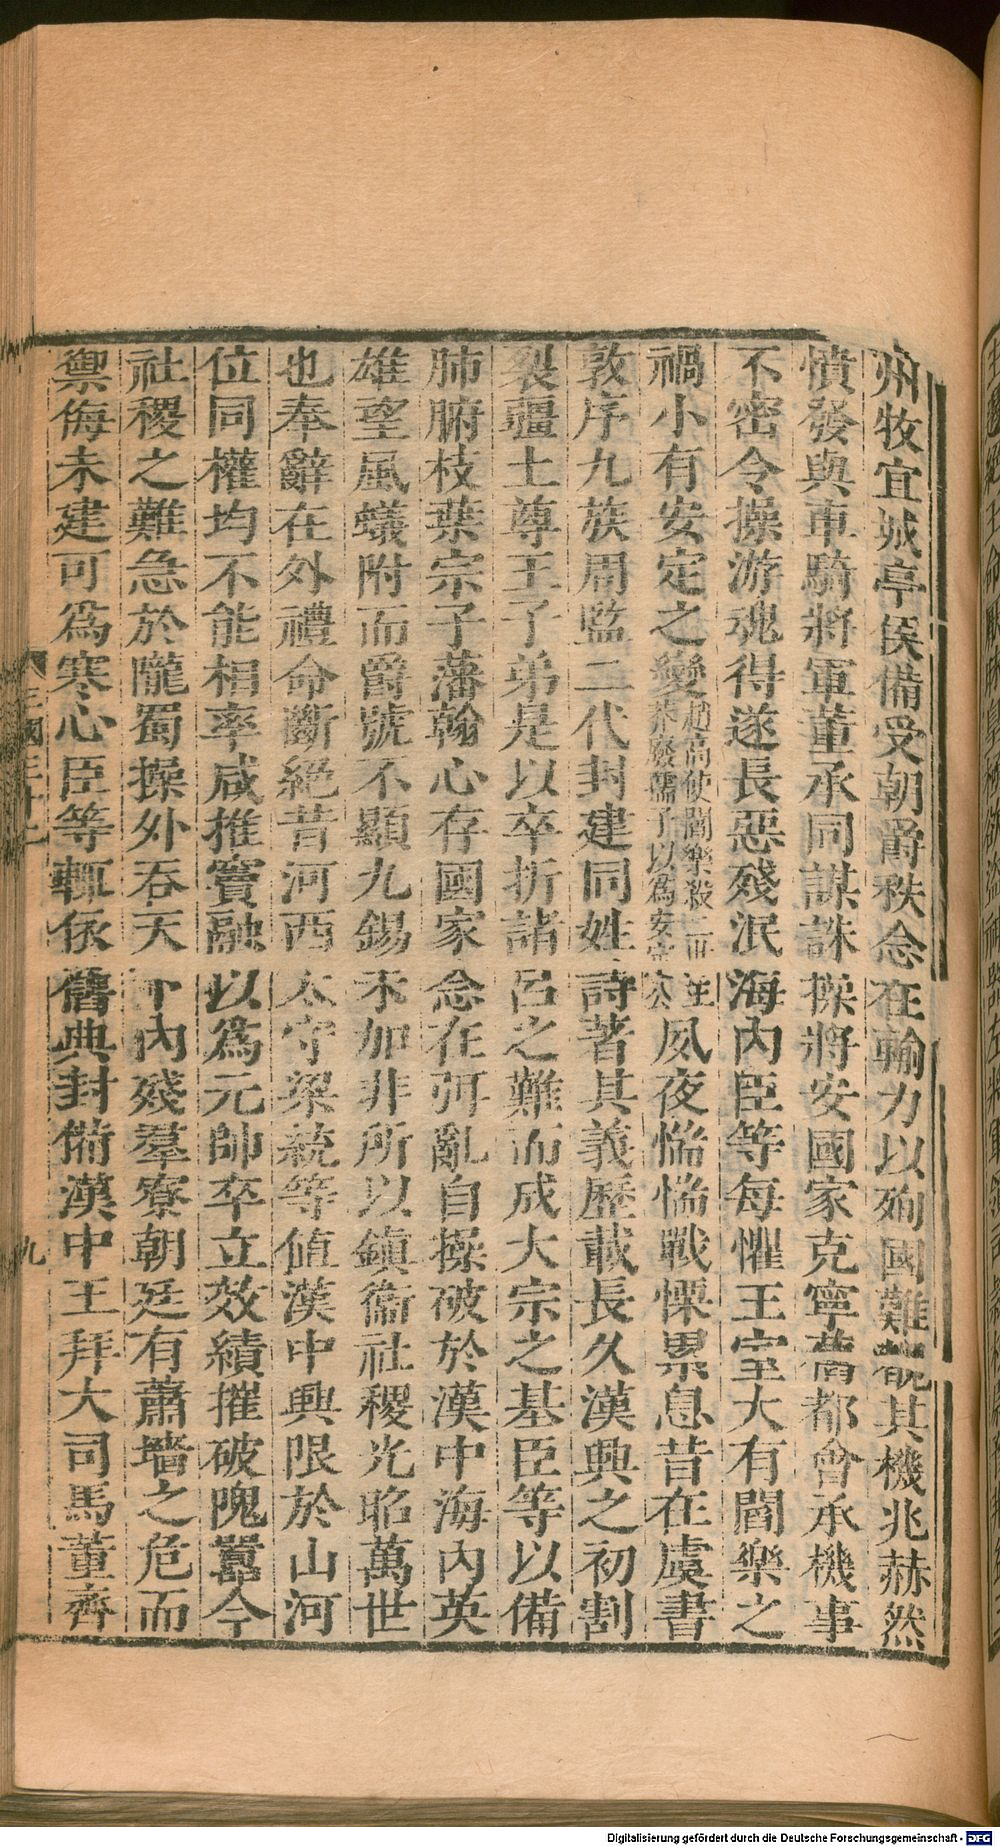 州牧宜城亭侯備受朝爵秩念在輸力以殉國難覩其機兆赫然
憤發與車騎將軍董承同謀誅操將安國家克寧舊都會承機事
不密令操游魂得遂長惡殘泯海內臣等每懼王室大有閻樂之
禍小有安定之變趙高使閻樂殺二世王莽廢孺子以為安定公夙夜惴惴戰慄累息昔在虞書
敦序九族周監二代封建同姓詩著其義歷載長久漢興之初割
裂疆土尊王子弟是以卒折諸呂之難而成大宗之基臣等以備
肺腑枝葉宗子藩翰心存國家念在弭亂自操破於漢中海內英
雄望風蟻附而爵號不顯九錫未加非所以鎮衞社稷光昭萬世
也奉辭在外禮命斷絕昔河西太守梁統等値漢中興限於山河
位同權均不能相率咸推竇融以爲元帥卒立效績摧破隗囂今
社稷之難急於隴蜀操外吞天下內殘羣寮朝廷有蕭墻之危而
禦侮未建可爲寒心臣等輒依舊典封備漢中王拜大司馬董齊
九
Digitalisierung gefördert durch die Deutsche Forschungsgemeinschaft - DFG